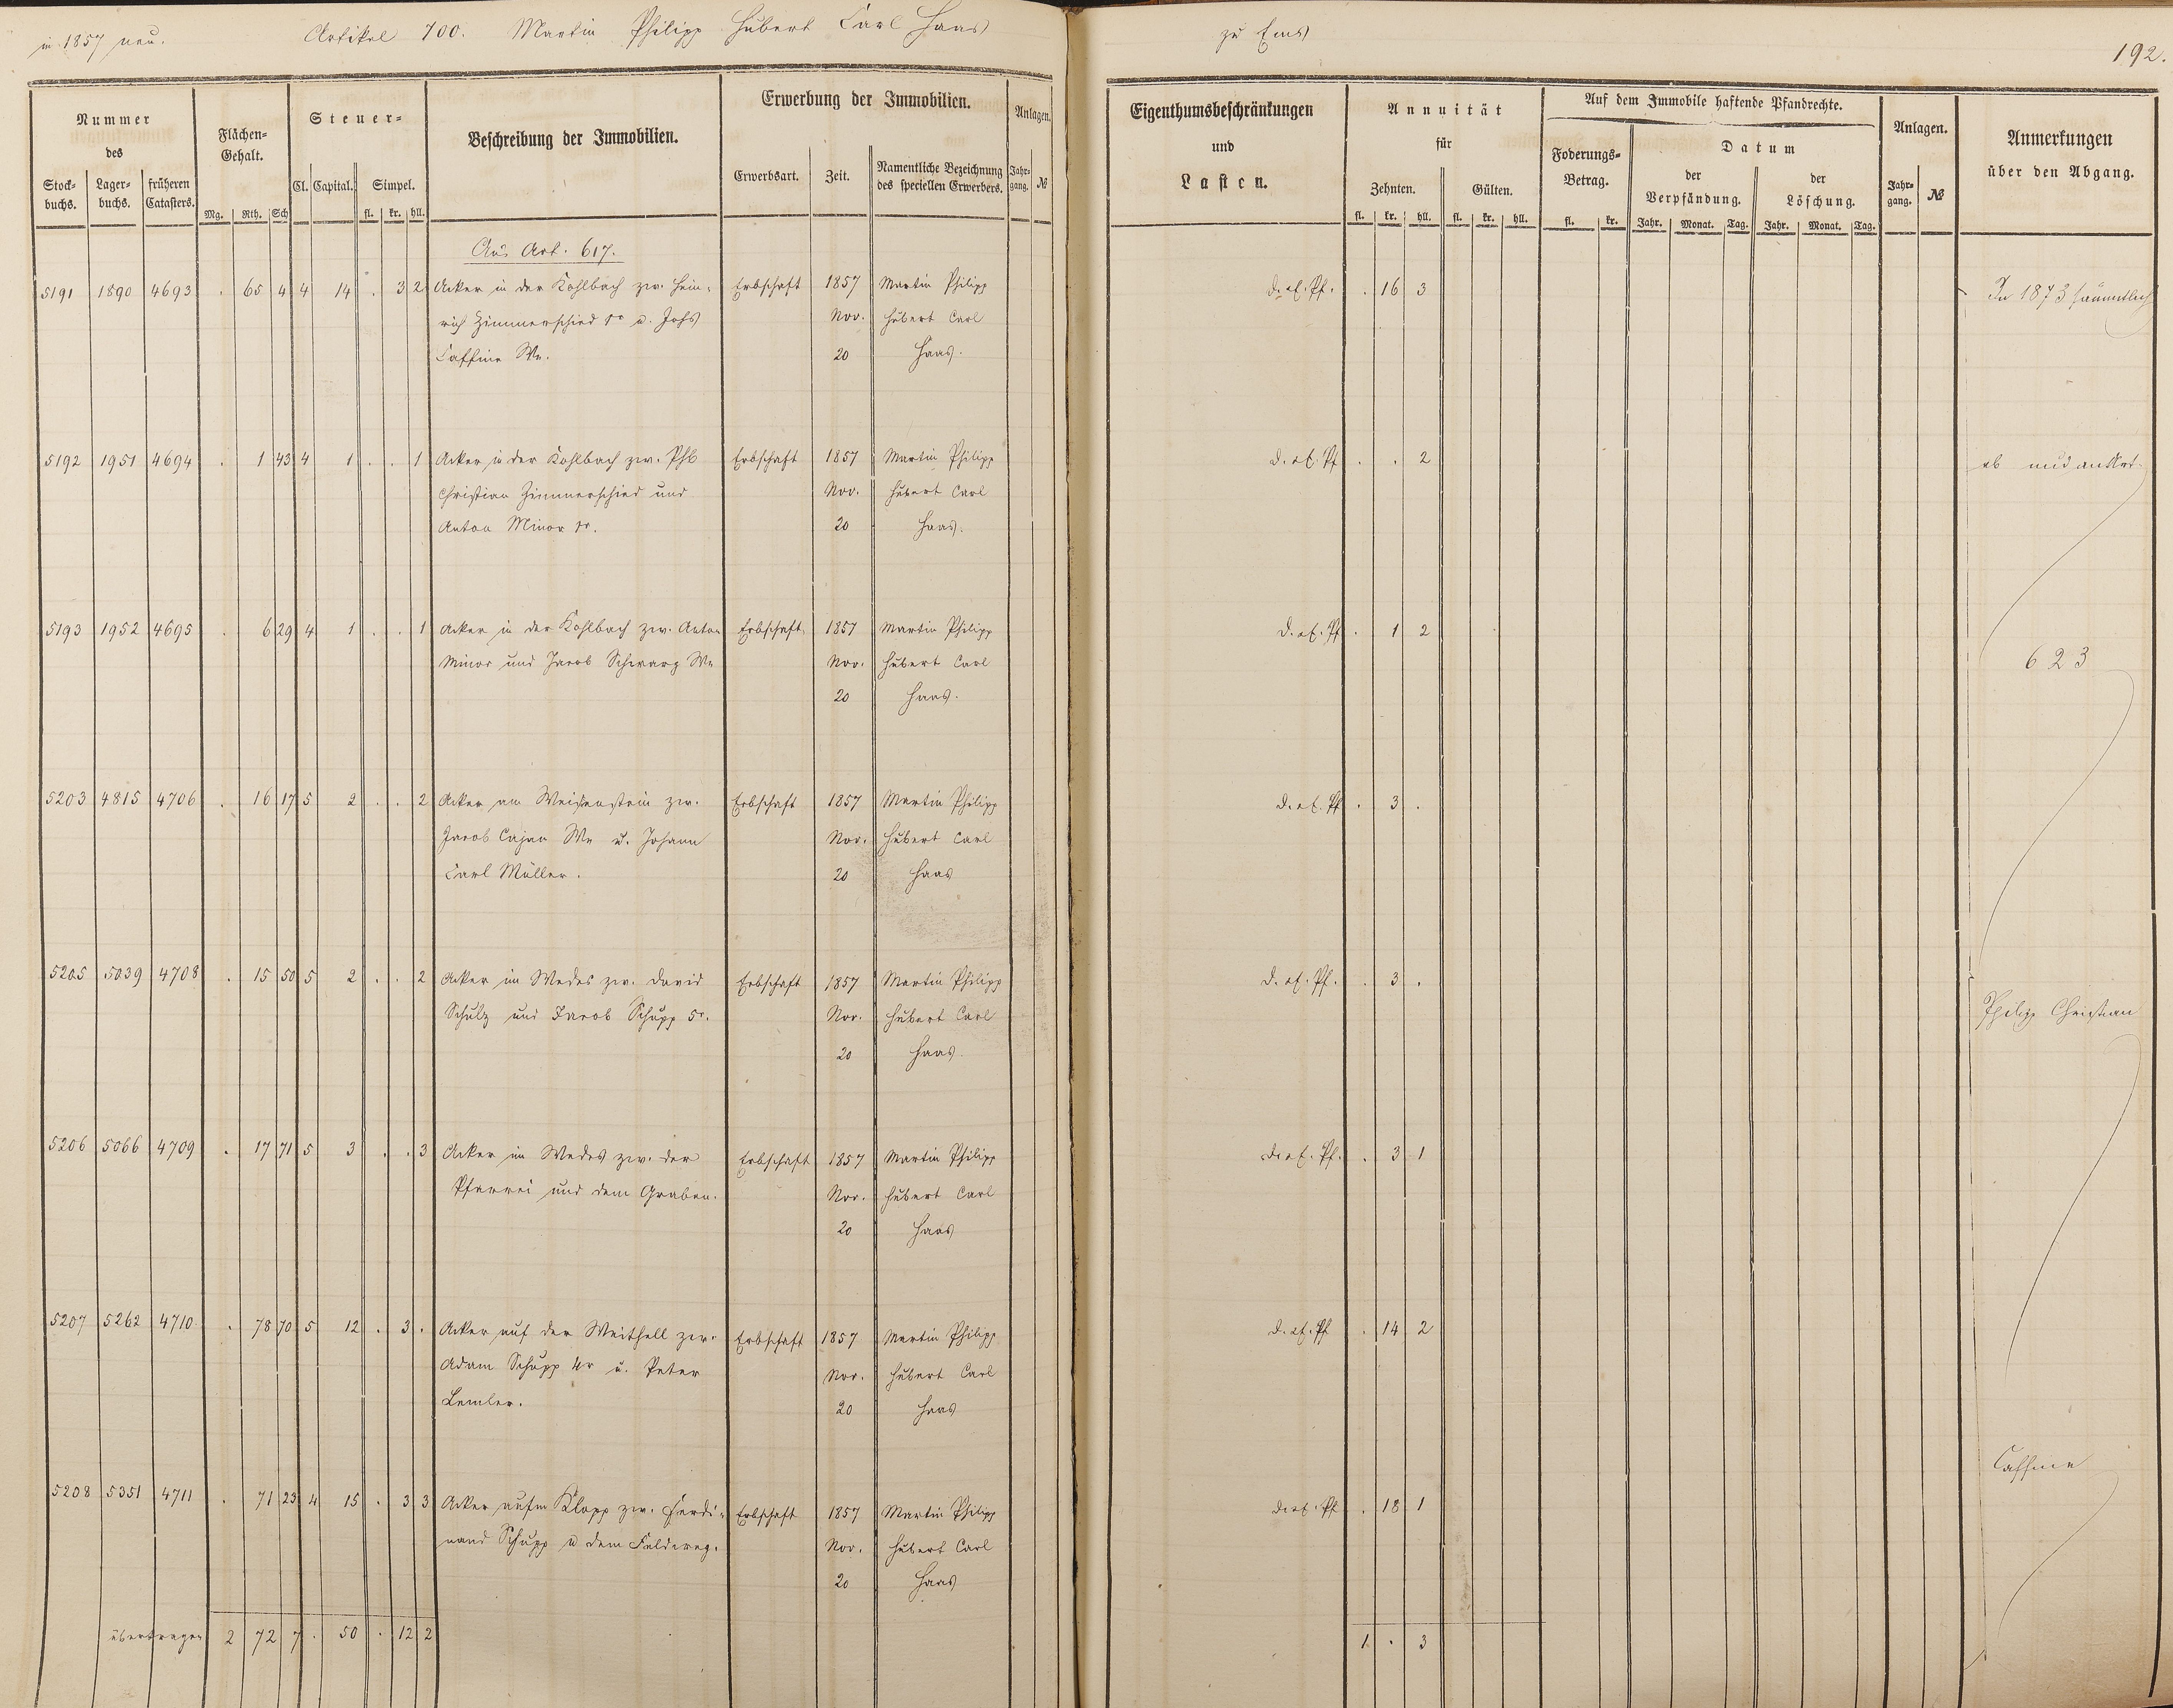 in 1857 neu. Artikel 700. Martin Philipp Hubert Carl Haas zu Ems 192.
Nummer des
Stock-buchs. Lager-buchs. früheren Catasters.
Flächen-Gehalt.
Mg. Rth. Sch
Steuer-
Cl. Capital. Simpel.
fl. kr. hll.
Beschreibung der Immobilien.
Erwerbung der Immobilien.
Erwerbsart. Zeit. Namentliche Bezeichnung des speciellen Erwerbers.
Anlagen.
Jahr-gang. №
Eigenthumsbeschränkungen
und
Lasten.
Annuität
für
Zehnten. Gülten.
fl. kr. hll. fl. kr. hll.
Auf dem Immobile haftende Pfandrechte.
Foderungs-Betrag.
fl. kr.
Datum
der Verpfändung. der Löschung.
Jahr. Monat. Tag. Jahr. Monat. Tag.
Anlagen.
Jahr-gang. №
Anmerkungen
über den Abgang.
Aus Art. 617.
5191 1890 4693 . 65 4 4 14 . 3 2 Acker in der Kohlbach zw. Hein- Erbschaft 1857 Martin Philipp . 16 3 In 1873 sämmtlich
rich Zimmerschied 1r u. Johs Nov. Hubert Carl
Caffine We. 20 Haas.
5192 1951 4694 . 1 43 4 1 . . 1 Acker in der Kohlbach zw. Phb Erbschaft 1857 Martin Philipp . . 2 ab und an Art.
Christian Zimmerschied und Nov. Hubert Carl
Anton Minor 1r. 20 Haas.
5193 1952 4695 . 6 29 4 1 . . 1 Acker in der Kohlbach zw. Anton Erbschaft 1857 Martin Philipp . 1 2
Minor und Jacob Schwarz We Nov. Hubert Carl 623
20 Haas.
5203 4815 4706 . 16 17 5 2 . . 2 Acker am Weisenstein zw. Erbschaft 1857 Martin Philipp . 3 .
Jacob Cajan We u. Johann Nov. Hubert Carl
Carl Müller. 20 Haas
5205 5039 4708 . 15 50 5 2 . . 2 Acker im Wedes zw. David Erbschaft 1857 Martin Philipp . 3 .
Schulz und Jacob Schupp 5r. Nov. Hubert Carl Philipp Christian
20 Haas.
5206 5066 4709 . 17 71 5 3 . . 3 Acker im Wedes zw. der Erbschaft 1857 Martin Philipp . 3 1
Pfarrei und dem Graben. Nov. Hubert Carl
20 Haas
5207 5262 4710 . 78 70 5 12 . 3 . Acker auf der Weithell zw. Erbschaft 1857 Martin Philipp . 14 2
Adam Schupp 4r u. Peter Nov. Hubert Carl
Lemler. 20 Haas
Caffine
5208 5351 4711 . 71 23 4 15 . 3 3 Acker aufm Klopp zw. Ferdi- Erbschaft 1857 Martin Philipp . 18 1
nand Schupp u dem Feldweg. Nov. Hubert Carl
20 Haas
übertragen 2 72 7 . 50 . 12 2 1 . 3